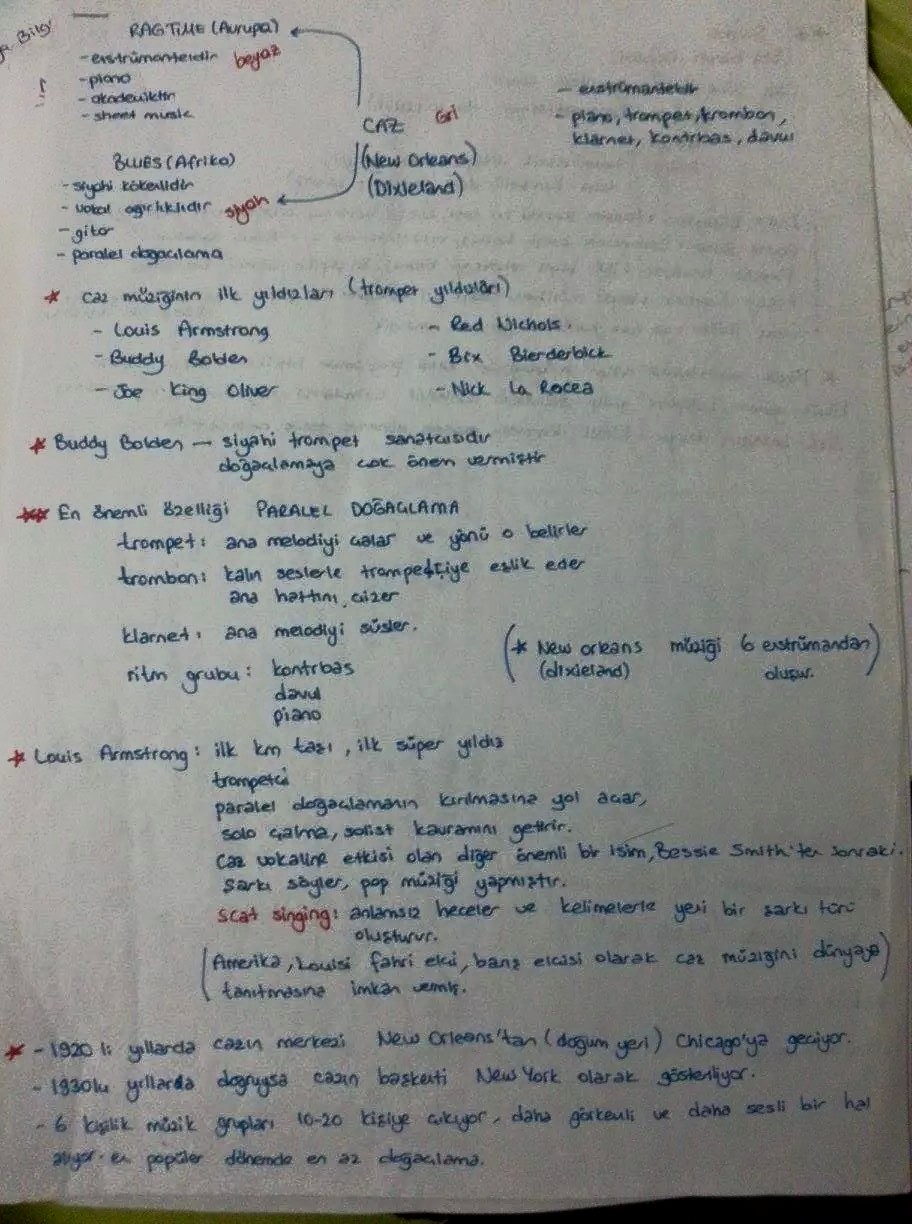 RAGTIME (Avrupa)
- enstrümanteldir beyaz
- piano
- akademiktir
- sheet music
CAZ Gri
(New Orleans)
(Dixieland)
- enstrümanteldir
- piano, trompet, trombon,
klarnet, kontrbas, davul
BLUES (Afrika)
- siyahi kökenlidir
- vokal ağırlıklıdır siyah
- gitar
- paralel doğaçlama
* caz müziğinin ilk yıldızları (trompet yıldızları)
- Louis Armstrong
- Buddy Bolden
- Joe King Oliver
- Red Nichols.
- Bix Bierderbick
- Nick La Rocca
* Buddy Bolden — siyahi trompet sanatçısıdır
doğaçlamaya çok önem vermiştir
** En önemli özelliği PARALEL DOĞAÇLAMA
trompet: ana melodiyi çalar ve yönü o belirler
trombon: kalın seslerle trompetçiye eşlik eder
ana hattını çizer
klarnet: ana melodiyi süsler.
ritm grubu: kontrbas
davul
piano
(* New orleans müziği 6 enstrümandan
(dixieland) oluşur.)
* Louis Armstrong: ilk km taşı, ilk süper yıldız
trompetçi
paralel doğaçlamanın kırılmasına yol açar,
solo çalma, solist kavramını getirir.
Caz vokaline etkisi olan diğer önemli bir isim, Bessie Smith'ten sonraki.
Şarkı söyler, pop müziği yapmıştır.
scat singing: anlamsız heceler ve kelimelerle yeni bir şarkı türü
oluşturur.
(Amerika, Louisi fahri elçi, barış elçisi olarak caz müziğini dünyaya
tanıtmasına imkan vermiş.)
* - 1920 li yıllarda cazın merkezi New Orleans'tan (doğum yeri) Chicago'ya geçiyor.
- 1930lu yıllarda doğruysa cazın başkenti New York olarak gösteriliyor.
- 6 kişilik müzik grupları 10-20 kişiye çıkıyor, daha görkemli ve daha sesli bir hal
alıyor. en popüler dönemde en az doğaçlama.